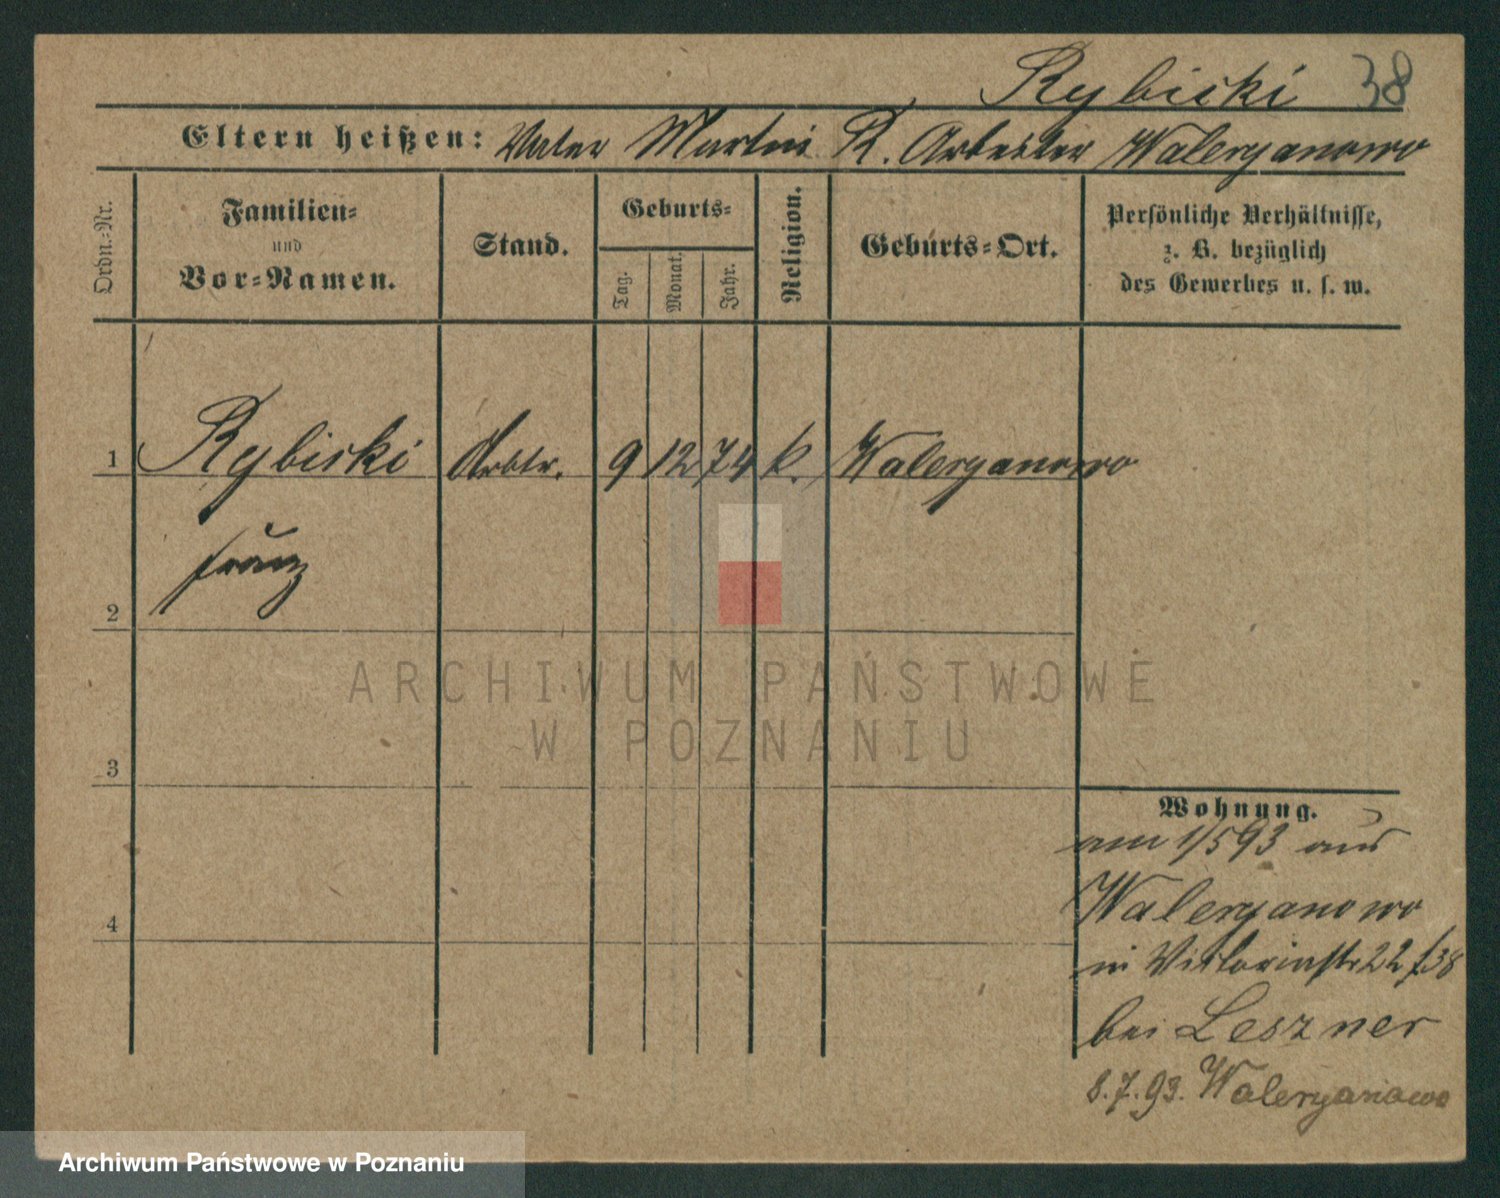 Rybicki 38
Eltern heißen: Vater Martin R. Arbeiter Waleryanowo
Ordn.-Nr.
Familien-
und
Vor-Namen.
Stand.
Geburts-
Tag.
Monat.
Jahr.
Religion.
Geburts-Ort.
Persönliche Verhältnisse,
z. B. bezüglich
des Gewerbes u. s. w.
1 Rybicki Arbtr. 9 12 74 k. Waleryanowo
Franz
2
ARCHIWUM PAŃSTWOWE
W POZNANIU
3
Wohnung.
am 1/5 93 aus
Waleryanowo
4
in Viktoriastr 22 f. 38
bei Leszner
8.7.93. Waleryanowo
Archiwum Państwowe w Poznaniu